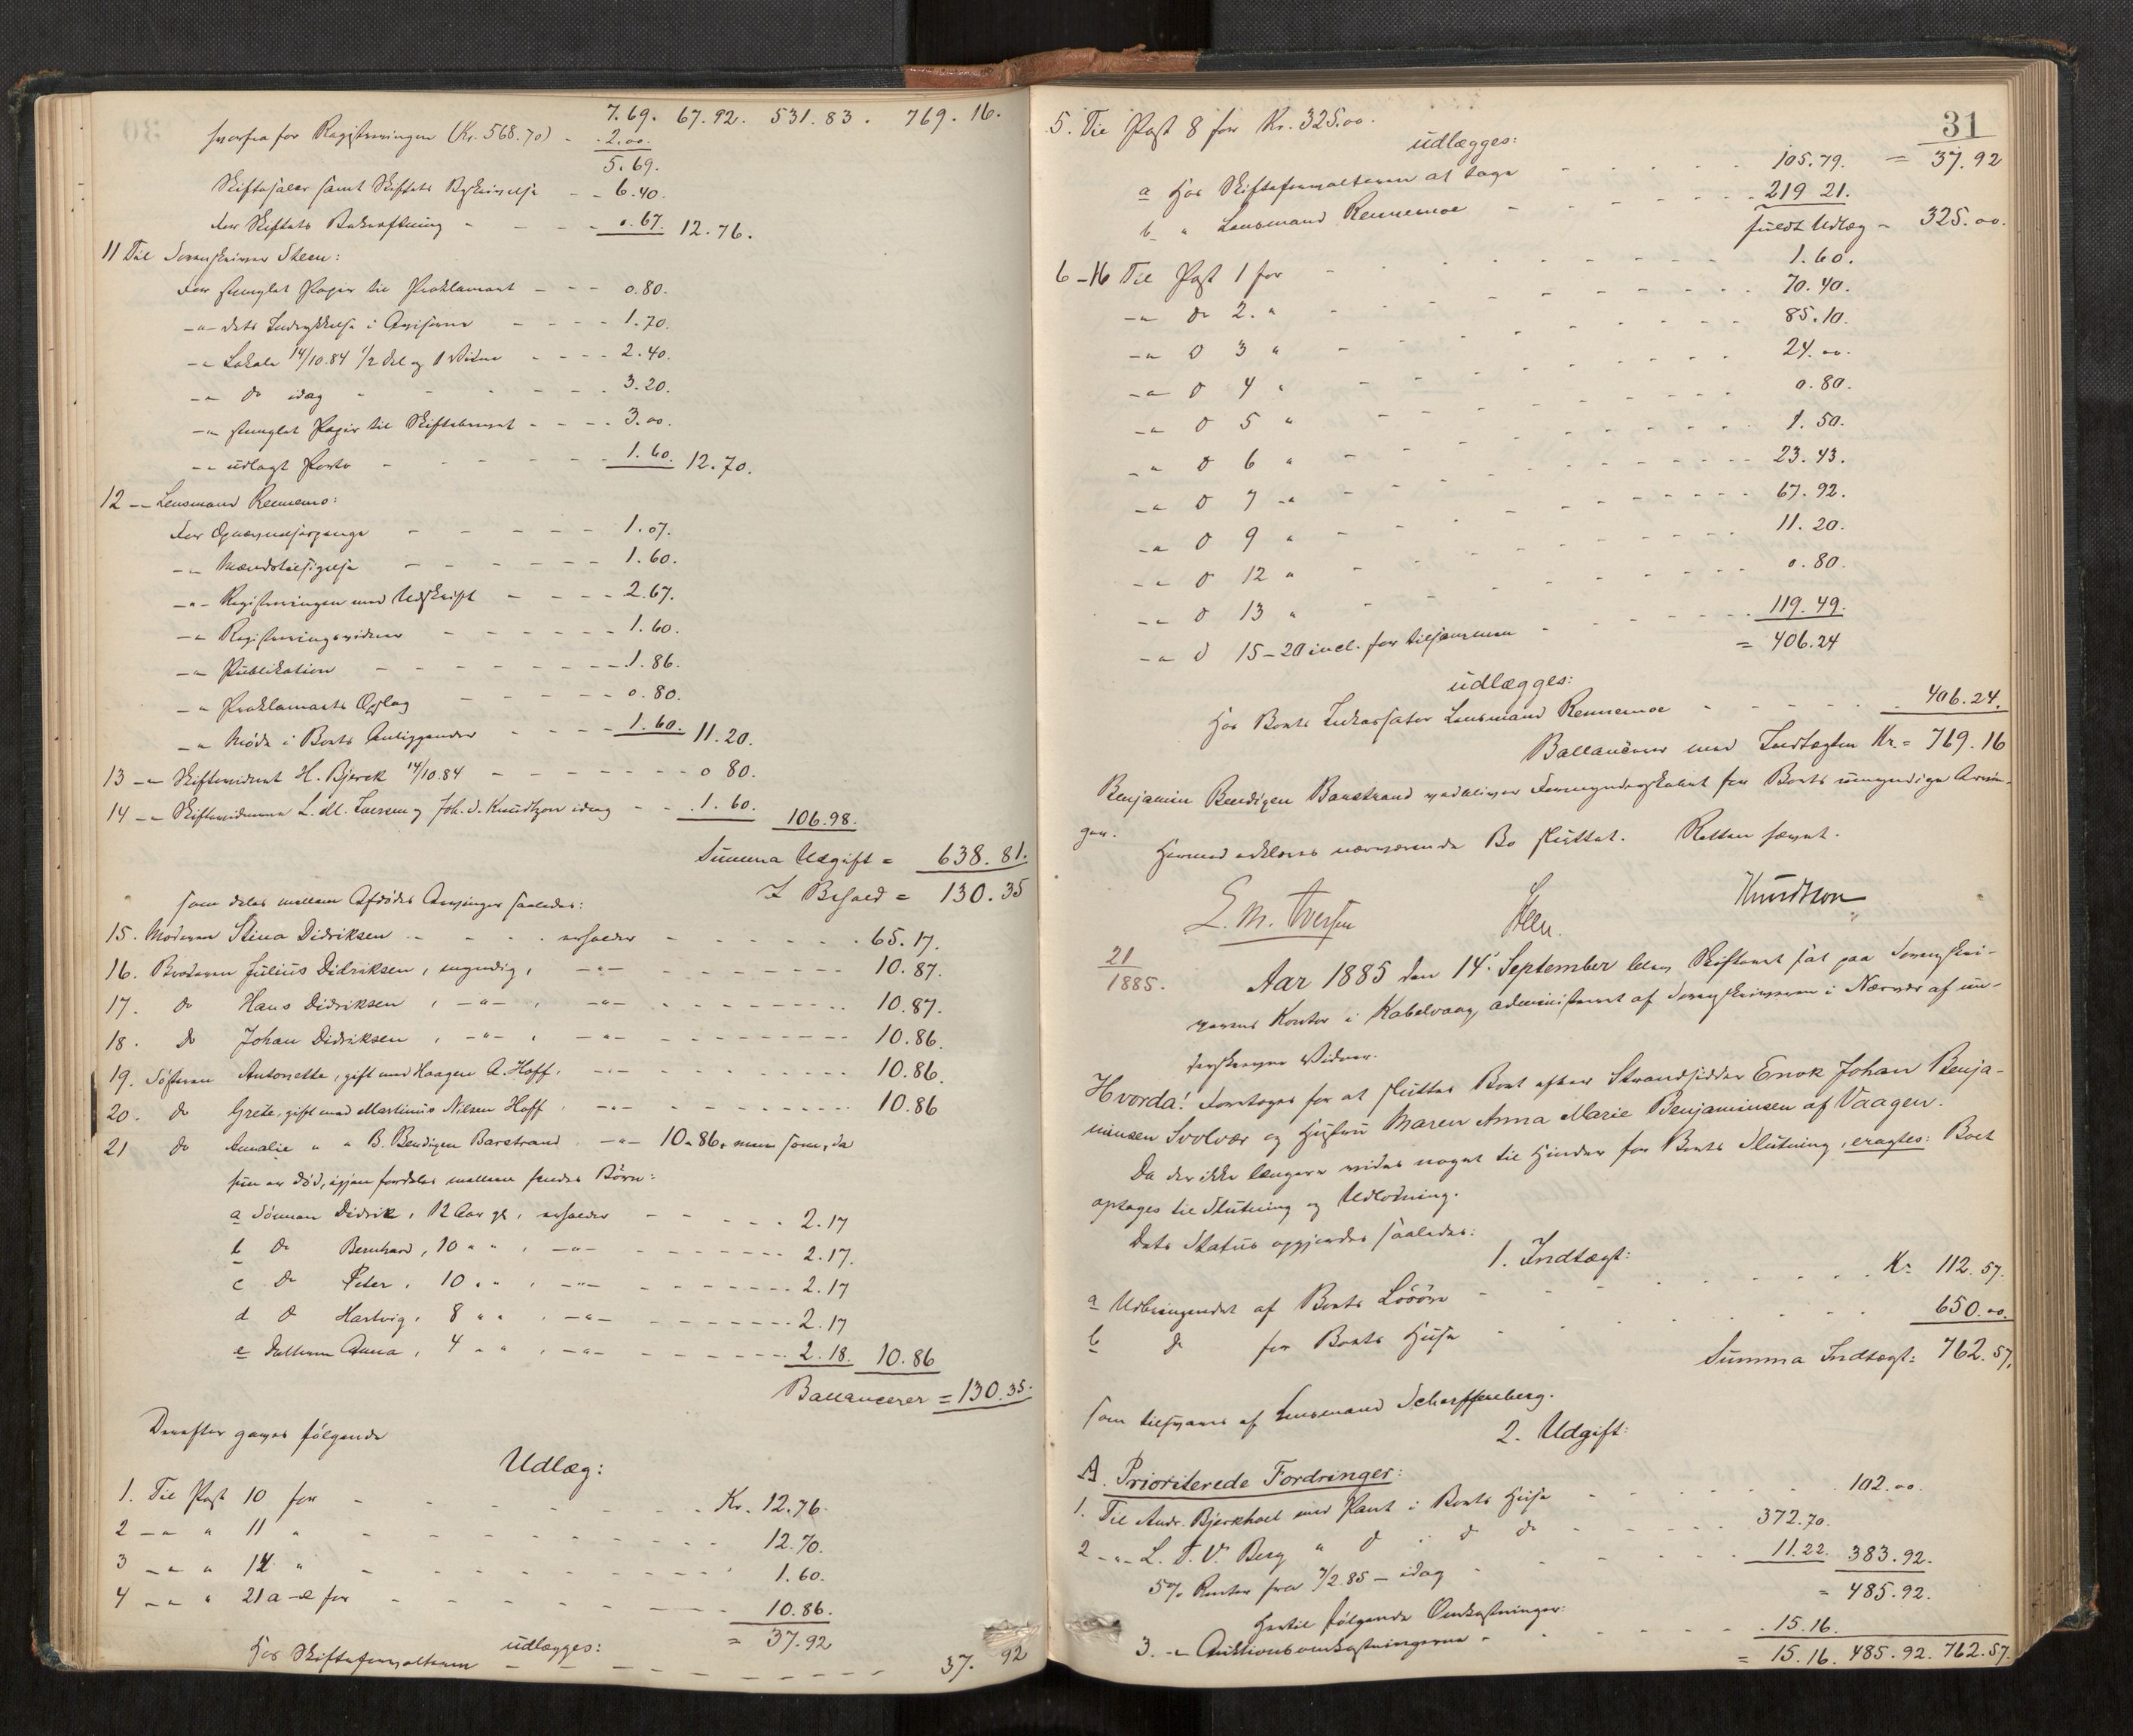 7.69. 67.92. 531.83. 769.16.
hvorfra for Registreringen (Kr. 568.70) - 2.00.
5.69.
Skiftesalær samt Skiftets Beskrivelse - - 6.40.
for Skiftets Bekræftning - - - 0.67. 12.76.
11 Til Sorenskriver Steen:
for stemplet Papir til Proklamaet - - - 0.80.
-"- dets Indrykkelse i Aviserne - - - - 1.70.
-"- Lokale 14/10.84 1/2 Del og 1 Vidne - - - - 2.40.
-"- do idag - - - - - 3.20.
-"- stemplet Papir til Skiftebrevet - - - - 3.00.
-"- udlagt Porto - - - - - 1.60. 12.70.
12 -"- Lensmand Rennemo:
for Opnævnelsespenge - - - - - 1.07.
-"- Mændstilsigelse - - - - - - 1.60.
-"- Registreringen med Udskrift - - - - 2.67.
-"- Registreringsvidner - - - - - - 1.60.
-"- Publikation - - - - - - - 1.86.
-"- Proklamaets Opslag - - - - - 0.80.
-"- Møde i Boets Anliggender - - - - 1.60. 11.20.
13 -"- Skiftevidnet H. Bjerck 14/10.84 - - - - - - - 0 80.
14 -"- Skiftevidnerne L. M. Iversen og Joh. J. Knudtzon idag - - 1.60. 106.98.
Summa Udgift = 638.81.
I Behold = 130.35
som deles mellem Afdødes Arvinger saaledes:
15. Moderen Stina Didriksen - - - - erholder - - - - - - - 65.17.
16. Broderen Julius Didriksen, myndig, -"- - - - - - - - - 10.87.
17. do Hans Didriksen , -"- , -"- - - - - - - - - 10.87.
18. do Johan Didriksen , -"- , -"- - - - - - - - - 10.86.
19. Søsteren Antonette, gift med Haagen A. Hoff, -"- - - - - - - 10.86.
20. do Grete, gift med Martinus Nilsen Hoff , -"- - - - - - - 10.86
21 do Amalie " " B. Bendixen Barstrand -"- 10.86, men som, da
hun er død, igjen fordeles mellem hendes Børn:
a Sønnen Didrik, 12 Aar gl, erholder - - - - - 2.17
b do Bernhard, 10 " " , -"- - - - - - - - 2.17.
c do Peter, 10 " " , -"- - - - - - - - 2.17
d do Hartvig, 8 " " , -"- - - - - - - - 2.17
e Datteren Anna, 4 " " , -"- - - - - - - 2.18. 10.86
Ballancerer = 130.35.
Derefter gaves følgende
Udlæg:
1. Til Post 10 for - - - - - - - - Kr. 12.76.
2 -"- " 11 " - - - - - - - - 12.70.
3 -"- " 14 " - - - - - - - - 1.60.
4 -"- " 21 a-e for - - - - - - - - 10.86.
= 37.92
udlægges:
Hos Skifteforvalteren - - - - - - - - - - 37. 92
31
5. Til Post 8 for Kr. 325.00.
udlægges:
a Hos Skifteforvalteren at tage - - - - - 105.79. = 37.92
b " Lensmand Rennemoe - - - - - - 219 21.
fuldt Udlæg - 325.00.
6-16 Til Post 1 for - - - - - - - - 1.60.
-"- do 2. " - - - - - - - - 70.40.
-"- do 3 " - - - - - - - - 85.10.
-"- do 4 " - - - - - - - - 24.00.
-"- do 5 " - - - - - - - - 0.80.
-"- do 6 " - - - - - - - - 1.50.
-"- do 7 -"- - - - - - - - 23.43.
-"- do 9 " - - - - - - - - 67.92.
-"- do 12 " - - - - - - - - 11.20.
-"- do 13 " - - - - - - - - 0.80.
-"- do 15-20 incl. for tilsammen - - - - - - 119.49.
= 406.24
udlægges:
Hos Boets Inkassator Lensmand Rennemoe - - - - - - 406.24.
Ballancerer med Indtægten Kr. = 769.16
Benjamin Bendixen Barstrand vedbliver Formynderskabet for Boets umyndige Arvin-
ger.
Hermed erklæres nærværende Bo sluttet. Retten hævet.
L. M. Iversen Steen. Knudtzon
21
1885.
Aar 1885 den 14. September blev Skifteret sat paa Sorenskri-
verens Kontor i Kabelvaag, administreret af Sorenskriveren i Nærvær af un-
derskrevne Vidner.
Hvorda! Foretoges for at sluttes Boet efter Strandsidder Enok Johan Benja-
minsen Svolvær og Hustru Maren Anna Marie Benjaminsen af Vaagen.
Da der ikke længere vides noget til Hinder for Boets Slutning, eragtes: Boet
optages til Slutning og Udlodning.
Dets Status opgjordes saaledes:
1. Indtægt:
a Udbringendet af Boets Løsøre - - - - - - - Kr 112.57.
b do for Boets Huse - - - - - - - 650.00.
Summa Indtægt: 762.57.
som tilsvares af Lensmand Scharffenberg.
2. Udgift:
A. Prioriterede Fordringer:
1. Til Andr. Bjerkholt med Pant i Boets Huse - - - - - - 102.00.
2 -"- L. T. V. Berg " do i do do - - - - - 372.70.
5% Renter fra 4/2.85 - idag - - - - - - 11.22. 383.92.
= 485.92.
Hertil følgende Omkostninger:
3. -"- Auktionsomkostningerne - - - - - - - 15.16.
= 15.16. 485.92. 762.57.